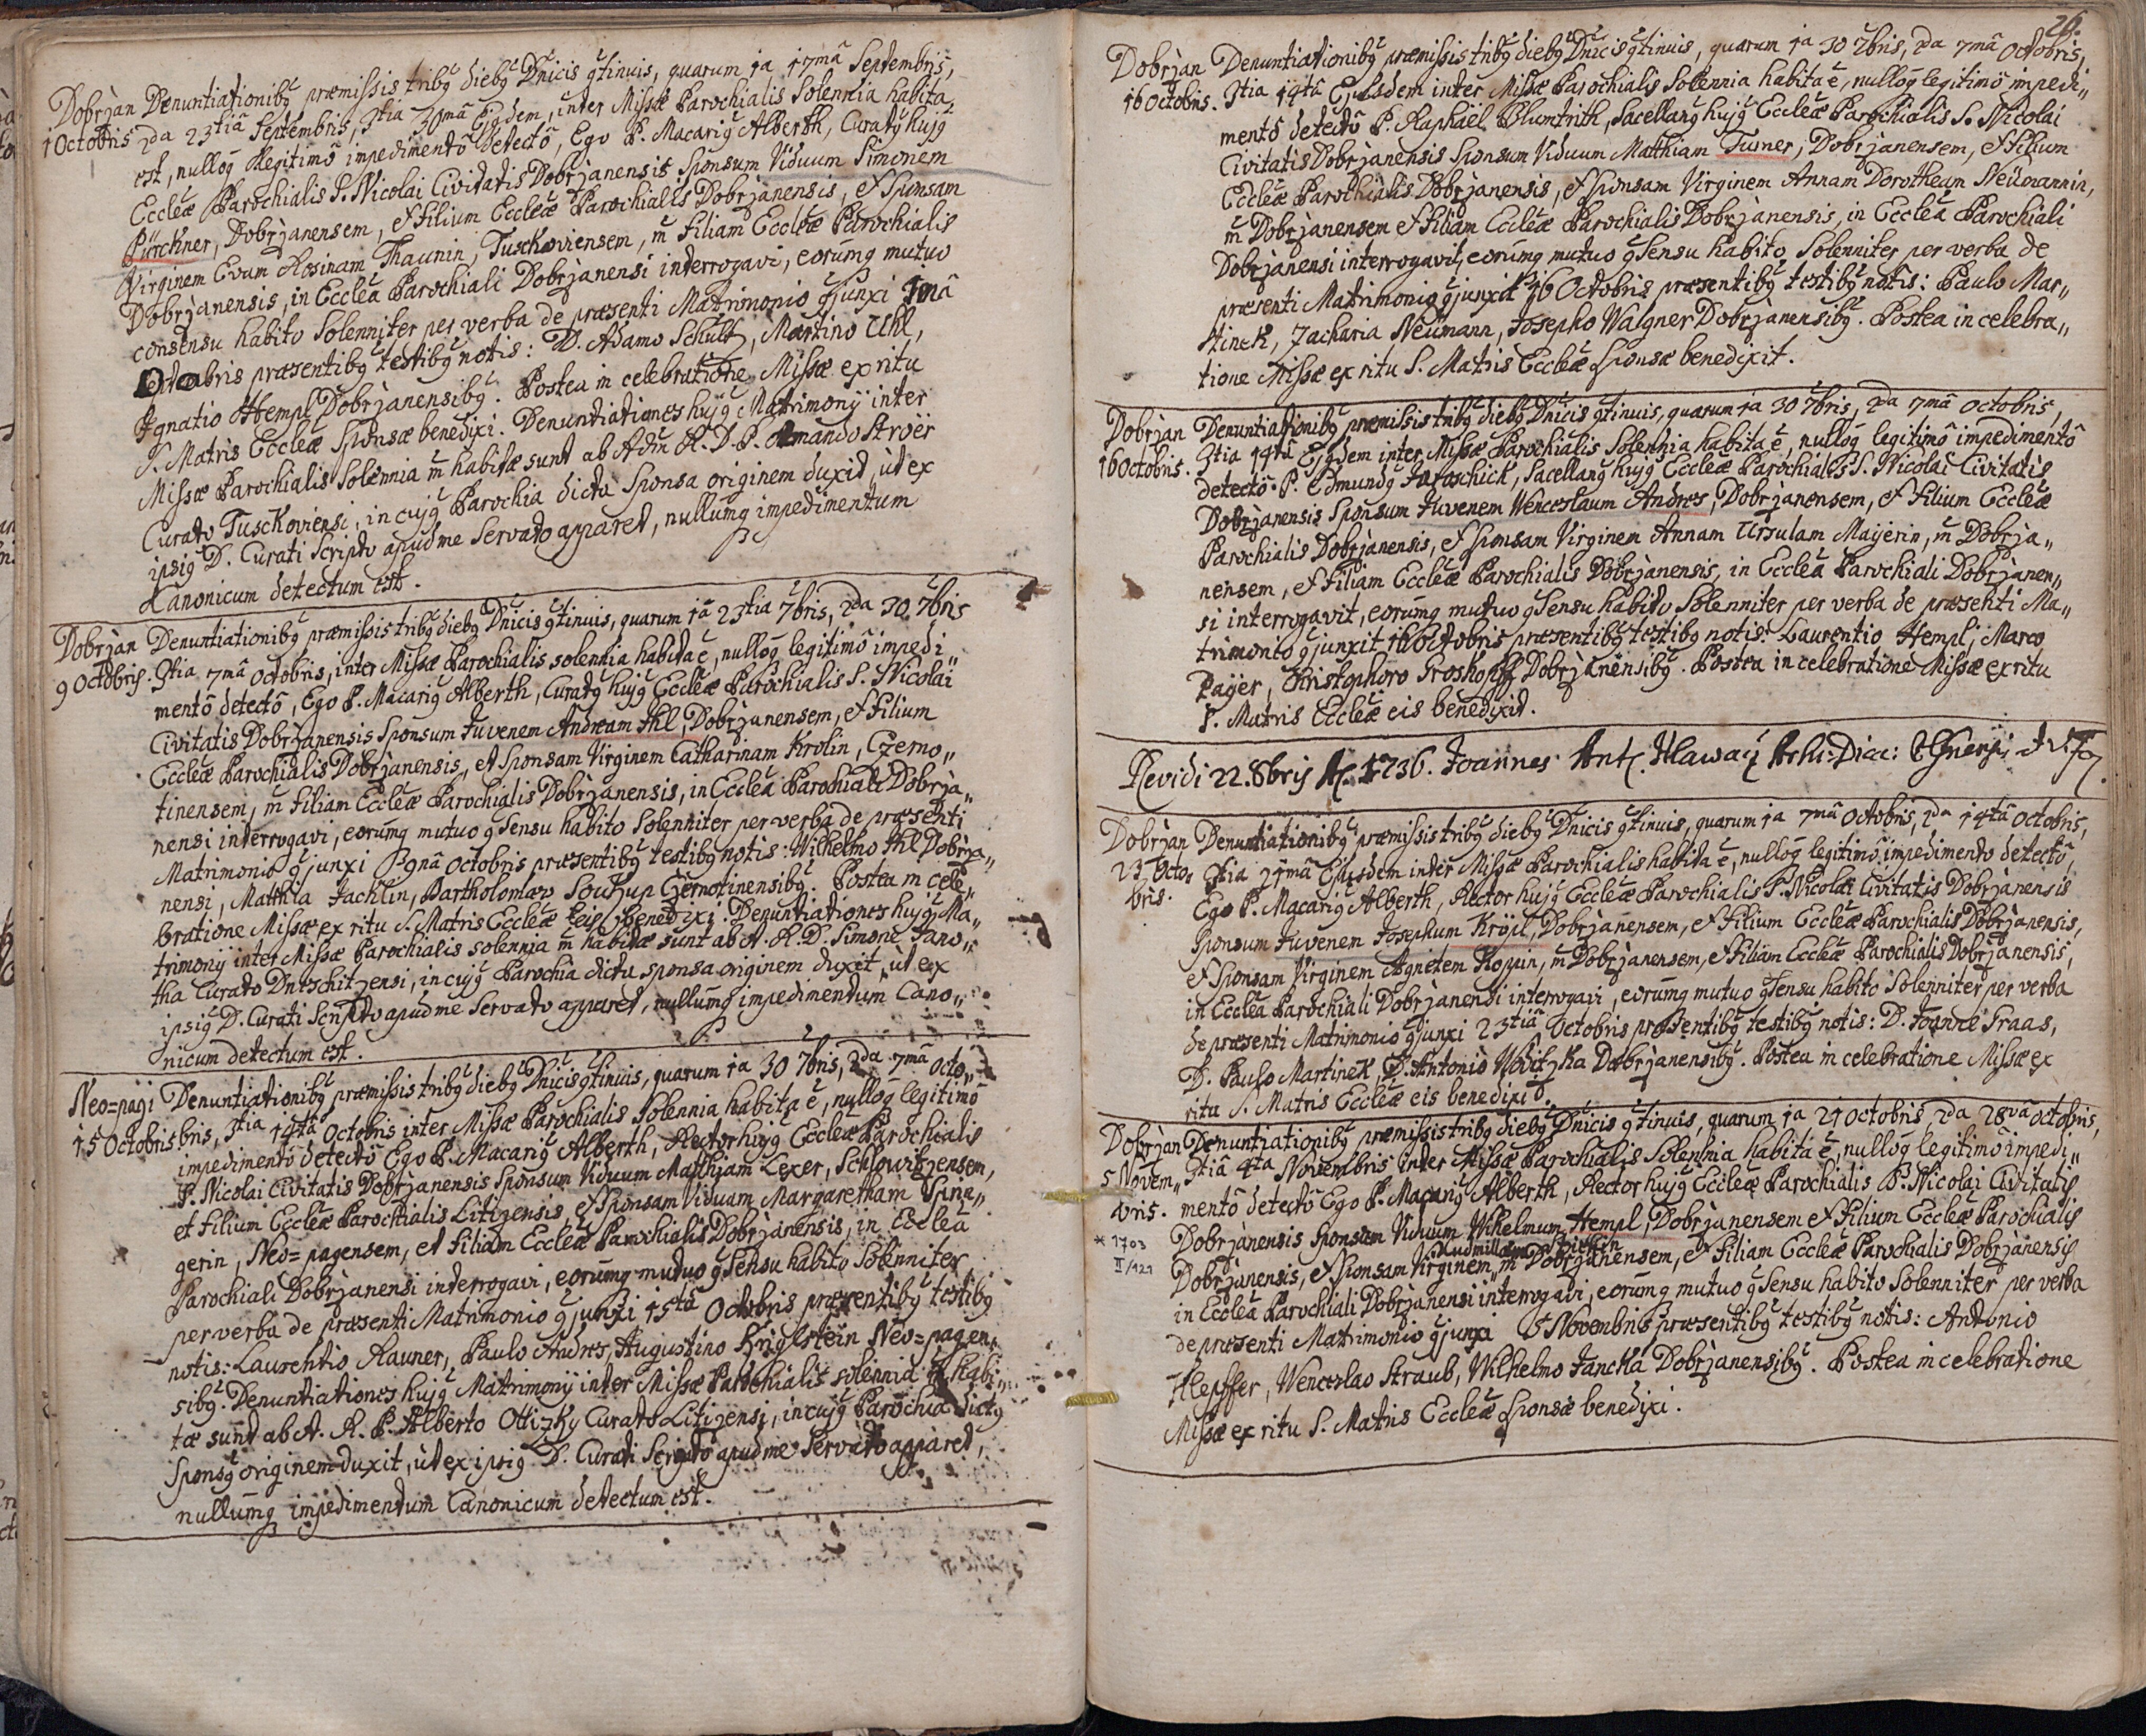 Dobrjan Denuntiationibg præmissis tribg diebg Dnicis gtinuis, quarum 1a 17mâ Septembris,
1 Octobris 2da 23tiâ Septembris, 3tia 30mâ Ejgdem, inter Missæ Parochialis Solennia habita
est, nullog legitimô impedimentô detectô, Ego P. Macarig Alberth, Curatg hujg
Eccleæ Parochialis S. Nicolai Civitatis Dobrjanensis Sponsum Viduum Simonem
Pürckner, Dobrjanensem, et Filium Eccleæ Parochialis Dobrjanensis, et Sponsam
Virginem Evam Rosinam Thaunin, Tuschkoviensem, m̄ Filiam Eccleæ Parochialis
Dobrjanensis, in Ecclea Parochiali Dobrjanensi interrogavi, eorumg mutuo
consensu habito Solenniter per verba de præsenti Matrimonio gjunxi 1mâ
Octobris præsentibg testibg notis: D. Adamo Schultz, Martino Uhl,
Ignatio Hempl Dobrjanensibg. Postea in celebratione Missæ ex ritu
S. Matris Eccleæ Sponsæ benedixi. Denuntiationes hujg Matrimonij inter
Missæ Parochialis Solennia m̄ habitæ sunt ab Adm R. D. P. Amando Stroër
Curato Tuschkoviensi, in cujg Parochia dicta Sponsa originem duxit, ùt ex
ipsig D. Curati Scripto apud me Servato apparet, nullumg impedimentum
Canonicum detectum est.
Dobrjan Denuntiationibg præmissis tribg diebg Dnicis gtinuis, quarum 1â 23tia 7bris, 2da 30 7bris
9 Octobris. 3tia 7mâ Octobris, inter Missæ Parochialis solennia habita ē, nullog legitimô impedi„
mentô detectô, Ego P. Macarig Alberth, Curatg hujg Eccleæ Parochialis S. Nicolai
Civitatis Dobrjanensis Sponsum Juvenem Andream Ihl, Dobrjanensem, et Filium
Eccleæ Parochialis Dobrjanensis, et Sponsam Virginem Catharinam Krolin, Czerno„
tinensem, m̄ Filiam Eccleæ Parochialis Dobrjanensis, in Ecclea Parochiali Dobrja„
nensi interrogavi, eorumg mutuo gSensu habito Solenniter per verba de præsenti
Matrimonio gjunxi 9nâ Octobris præsentibg testibg notis: Wilhelmo Ihl Dobrja„
nensi, Matthia Jachlin, Bartholomæo Soukup Czernotinensibg. Postea in cele„
bratione Missæ ex ritu S. Matris Eccleæ eis benedixi. Denuntiationes hujg Ma„
trimonij inter Missæ Parochialis solennia m̄ habitæ sunt ab A. R. D. Simone Jano„
tha Curato Dneschitzensi, in cujg Parochia dicta sponsa originem duxit, ùt ex
ipsig D. Curati Scripto apud me Servato apparet, nullumg impedimentum Cano„
nicum detectum est.
Neo=pagi Denuntiationibg præmissis tribg diebg Dnicis gtinuis, quarum 1a 30 7bris, 2da 7mâ Octo„
15 Octobris. bris, 3tia 14tâ Octobris inter Missæ Parochialis Solennia habita ē, nullog legitimô
impedimentô detectô Ego P. Macarig Alberth, Rector hujg Eccleæ Parochialis
S. Nicolai Civitatis Dobrjanensis Sponsum Viduum Matthiam Lexer, Schlowitzensem,
et Filium Eccleæ Parochialis Litizensis et Sponsam Viduam Margaretham
gerin, Neo=pagensem, et Filiam Eccleæ Parochialis Dobrjanensis, in Ecclea
Parochiali Dobrjanensi interrogavi, eorumg mutuo gSensu habito Solenniter
per verba de præsenti Matrimonio gjunxi 15tâ Octobris præsentibg testibg
notis: Laurentio Rauner, Paulo Andres, Augustino Krigelstein Neo=pagen„
sibg. Denuntiationes hujg Matrimonij inter Missæ Parochialis solennia m̄ habi„
tæ sunt ab A. R. P. Alberto Ottizky Curato Litizensi, in cujg Parochia dictg
Sponsg originem duxit, ùt ex ipsig D. Curati Scripto apud me Servato apparet,
nullumg impedimentum Canonicum detectum est.
26.
Dobrjan Denuntiationibg præmissis tribg diebg Dnicis gtinuis, quarum 1a 30 7bris, 2da 7mâ Octobris,
16 Octobris. 3tia 14tâ Ejusdem inter Missæ Parochialis Solennia habita ē, nullog legitimô impedi„
mentô detectô P. Raphaël Blumtrith, Sacellang hujg Eccleæ Parochialis S. Nicolai
Civitatis Dobrjanensis Sponsum Viduum Matthiam Turner, Dobrjanensem, et Filium
Eccleæ Parochialis Dobrjanensis, et Sponsam Virginem Annam Dorotheam Neümannin,
m̄ Dobrjanensem et Filiam Eccleæ Parochialis Dobrjanensis, in Ecclea Parochiali
Dobrjanensi interrogavit, eorumg mutuo gSensu habito Solenniter per verba de
præsenti Matrimonio gjunxit 16 Octobris præsentibg testibg notis: Paulo Mar„
tinek, Zacharia Neümann, Josepho Walgner Dobrjanensibg. Postea in celebra„
tione Missæ ex ritu S. Matris Eccleæ Sponsæ benedixit.
Dobrjan Denuntiationibg præmissis tribg diebg Dnicis gtinuis, quarum 1a 30 7bris, 2da 7mâ Octobris,
16 Octobris. 3tia 14tâ Ejgdem inter Missæ Parochialis Solennia habita ē, nullog legitimô impedimentô
detectô P. Edmundg Jaroschick, Sacellang hujg Eccleæ Parochialis S. Nicolai Civitatis
Dobrjanensis Sponsum Juvenem Wenceslaum Andres, Dobrjanensem, et Filium Eccleæ
Parochialis Dobrjanensis, et Sponsam Virginem Annam Ursulam Maÿerin, m̄ Dobrja„
nensem, et Filiam Eccleæ Parochialis Dobrjanensis, in Ecclea Parochiali Dobrjanen„
si interrogavit, eorumg mutuo gSensu habito Solenniter per verba de præsenti Ma„
trimonio gjunxit 16 Octobris præsentibg testibg notis: Laurentio Hempl, Marco
Paÿer, Christophoro Groskopff Dobrjanensibg. Postea in celebratione Missæ ex ritu
S. Matris Eccleæ eis benedixit.
Revidi 22. 8bris A. 1736. Joannes Ant. Hlawaÿ Archi-Diac:
Dobrjan Denuntiationibg præmissis tribg diebg Dnicis gtinuis, quarum 1a 7mâ Octobris, 2da 14tâ Octobris,
23 Octo„ 3tia 21mâ Ejusdem inter Missæ Parochialis habita ē, nullog legitimô impedimento detectô,
bris. Ego P. Macarig Alberth, Rector hujg Eccleæ Parochialis S. Nicolai Civitatis Dobrjanensis
Sponsum Juvenem Josephum Kröpl, Dobrjanensem, et Filium Eccleæ Parochialis Dobrjanensis,
et Sponsam Virginem Agnetem Koppin, m̄ Dobrjanensem, et Filiam Eccleæ Parochialis Dobrjanensis,
in Ecclea Parochiali Dobrjanensi interrogavi, eorumg mutuo gSensu habito Solenniter per verba
de præsenti Matrimonio gjunxi 23tiâ Octobris præsentibg testibg notis: D. Joanne Fraas,
D. Paulo Martinek, D. Antonio Woditzka Dobrjanensibg. Postea in celebratione Missæ ex
ritu S. Matris Eccleæ eis benedixi.
Dobrjan Denuntiationibg præmissis tribg diebg Dnicis gtinuis, quarum 1a 21 Octobris, 2da 28vâ Octobris,
5 Novem„ 3tiâ 4ta Novembris inter Missæ Parochialis Solennia habita ē, nullog legitimô impedi„
bris. mentô detectô Ego P. Macarig Alberth, Rector hujg Eccleæ Parochialis S. Nicolai Civitatis
* 1703 Dobrjanensis Sponsum Viduum Wilhelmum Hempl, Dobrjanensem et Filium Eccleæ Parochialis
II/121 Dobrjanensis, et Sponsam Virginem Ludmillam m̄ Dobrjanensem, et Filiam Eccleæ Parochialis Dobrjanensis
in Ecclea Parochiali Dobrjanensi interrogavi, eorumg mutuo gSensu habito Solenniter per verba
de præsenti Matrimonio gjunxi 5 Novembris præsentibg testibg notis: Antonio
Klepffer, Wenceslao Straub, Wilhelmo Jancka Dobrjanensibg. Postea in celebratione
Missæ ex ritu S. Matris Eccleæ Sponsæ benedixi.